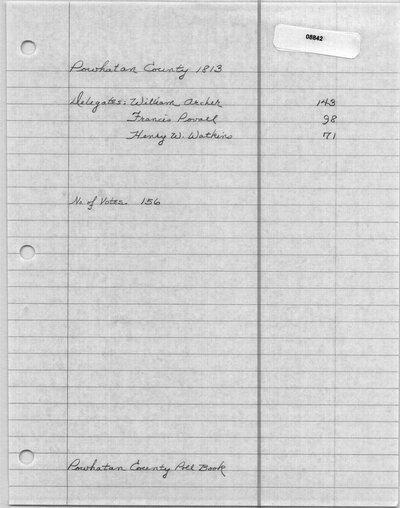 08842
Powhatan County 1813
Delegates: William Archer 143
Francis Povall 98
Henry W. Watkins 71
No. of Votes 156
Powhatan County Poll Book